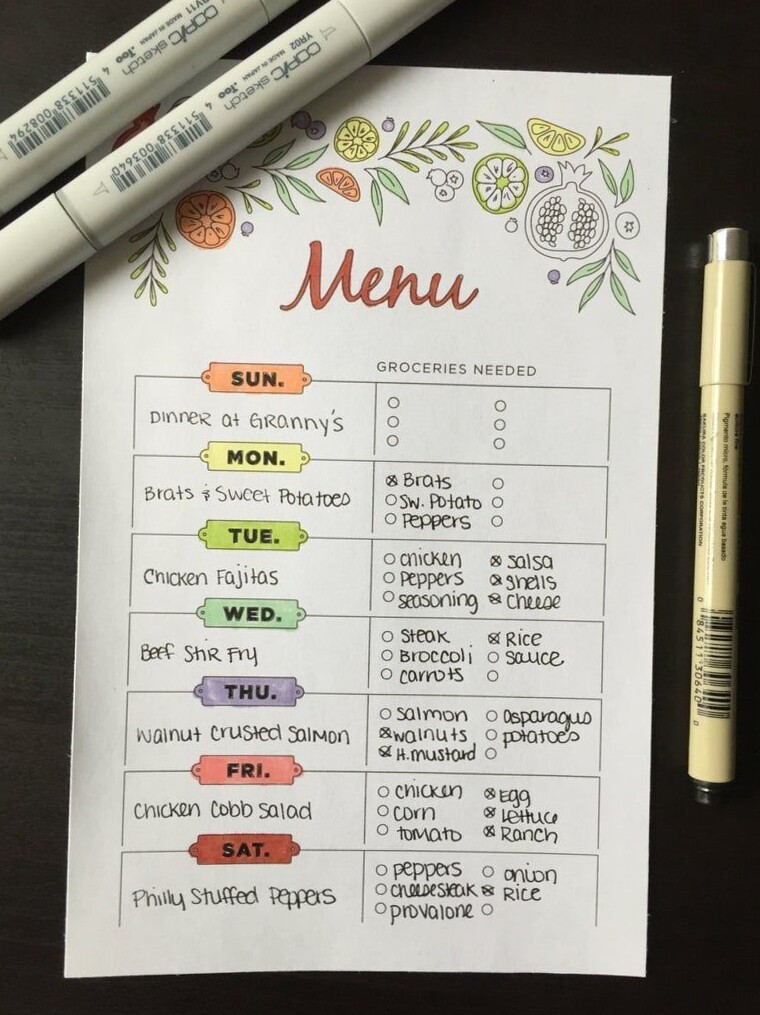 BV11
COPIC sketch
MADE IN JAPAN
.Too
4 511338 008294
YR02
COPIC sketch
MADE IN JAPAN
.Too
4 511338 003640
Menu
GROCERIES NEEDED
SUN.
Dinner at Granny's
MON.
Brats & Sweet Potatoes
Brats
Sw. Potato
Peppers
TUE.
Chicken Fajitas
chicken salsa
Peppers shells
seasoning cheese
WED.
Beef Stir Fry
Steak Rice
Broccoli sauce
carrots
THU.
Walnut Crusted Salmon
salmon Asparagus
walnuts potatoes
H.mustard
FRI.
Chicken Cobb Salad
chicken Egg
corn Lettuce
tomato Ranch
SAT.
Philly Stuffed Peppers
peppers onion
cheesesteak Rice
provalone
Pigmento micro, fórmula de la tinta agua basado
SAKURA COLOR PRODUCTS CORPORATION
0 84511 30640